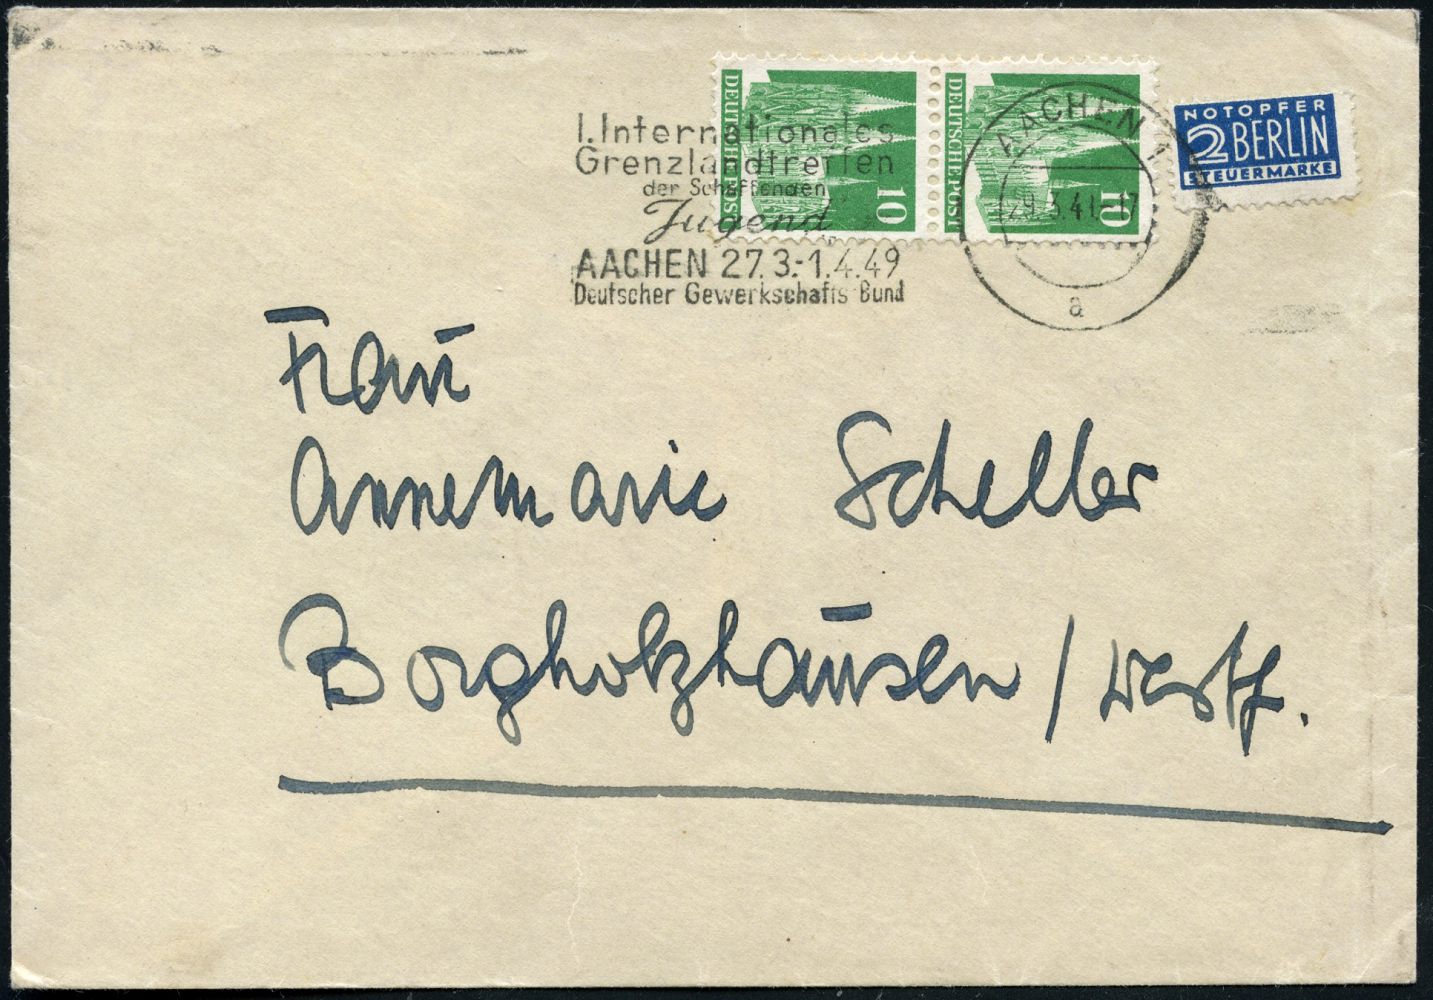 I. Internationales
Grenzlandtreffen
der Schaffenden
Jugend
AACHEN 27.3.-1.4.49
Deutscher Gewerkschafts Bund
DEUTSCHE POST
10
DEUTSCHE POST
10
AACHEN 1
29.3.41.-17
a
NOTOPFER
2 BERLIN
STEUERMARKE
Frau
Annemarie Scheller
Borgholzhausen / Westf.